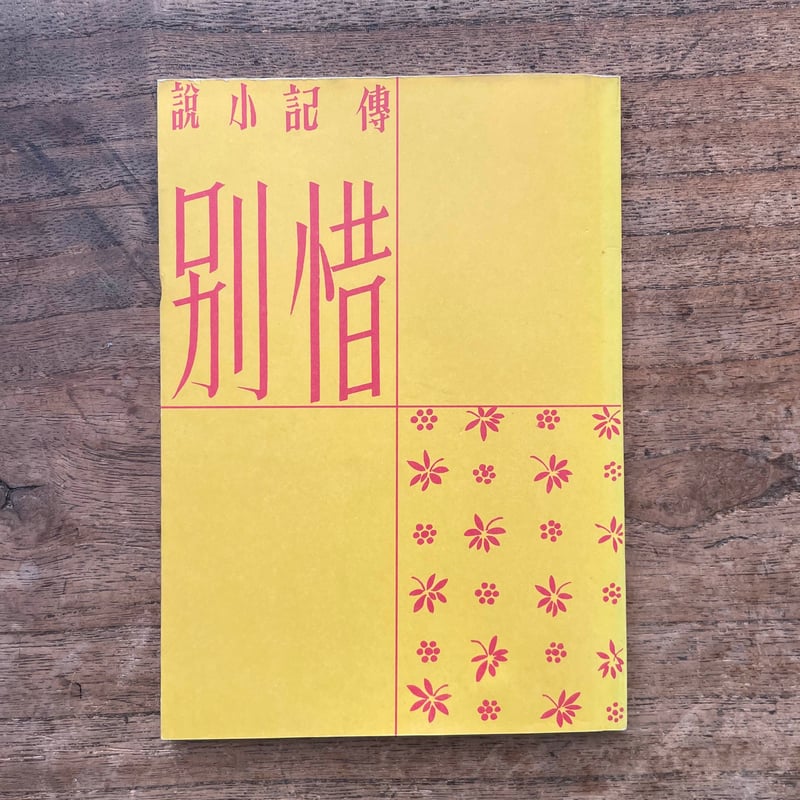 傳記小說
惜別